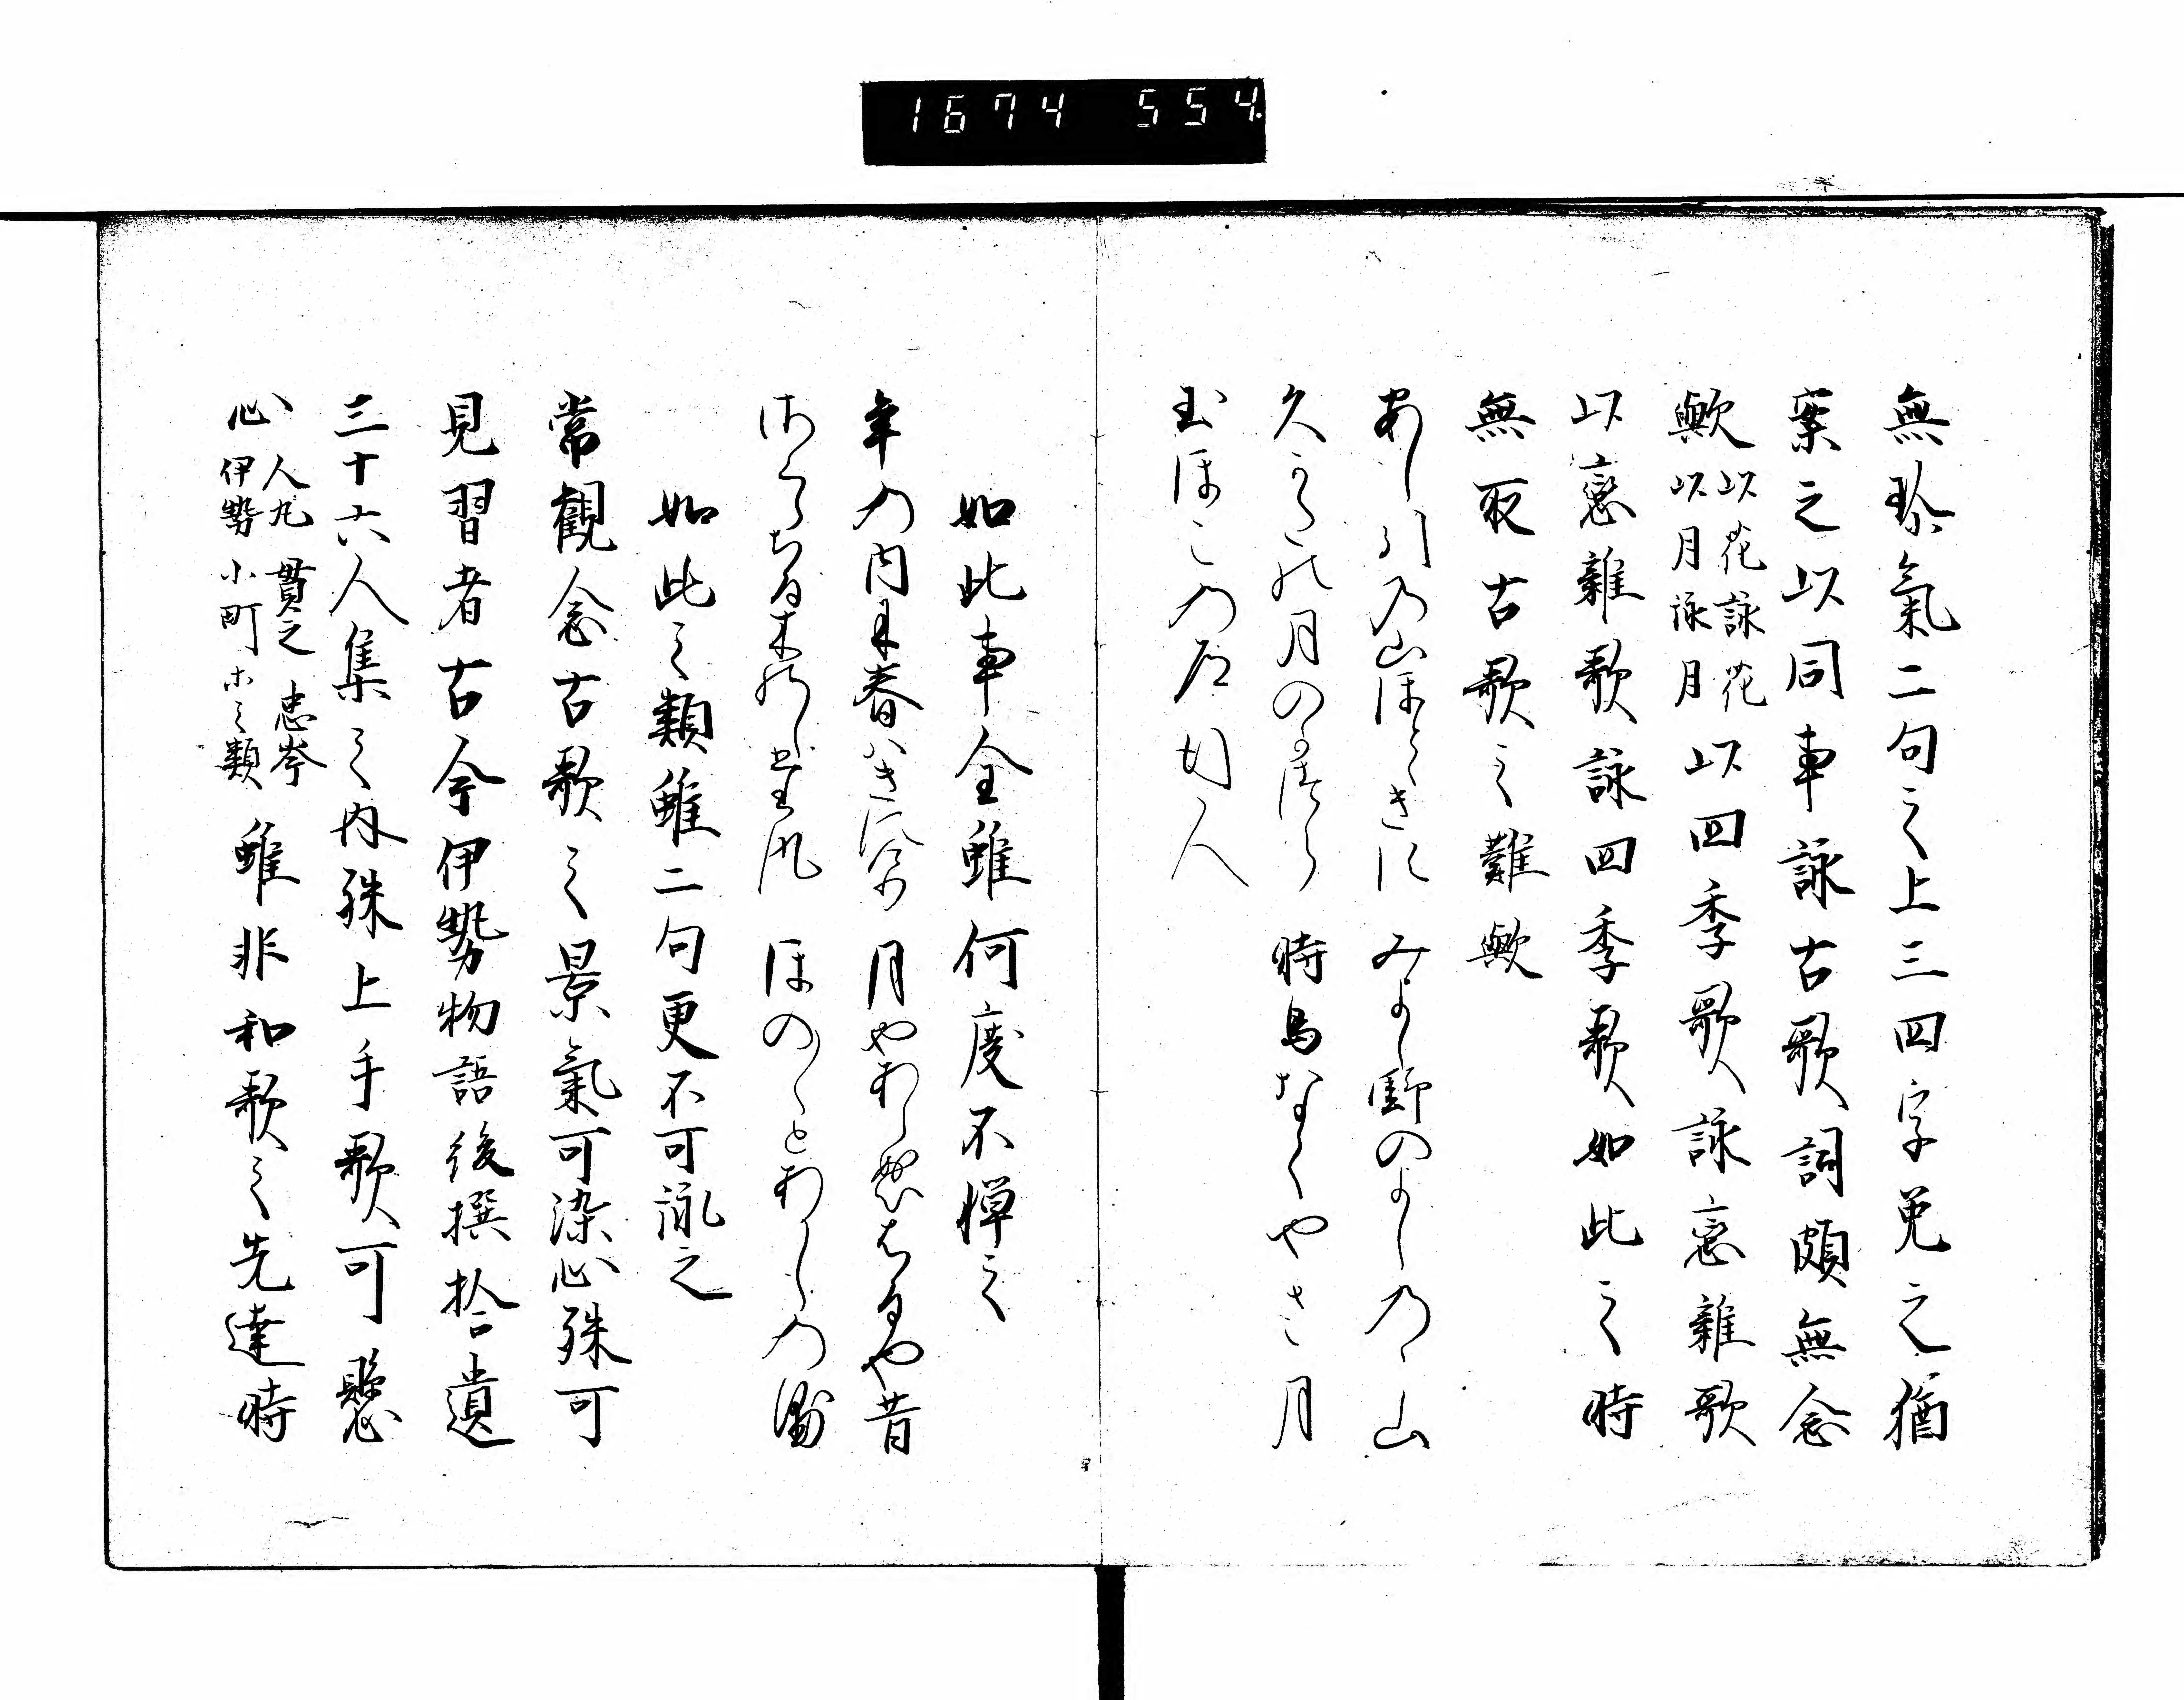 1674 554.
無珍氣二句之上三四字免之猶
案之以同事詠古歌詞頗無念
歟以花詠花以月詠月以四季歌詠戀雜歌
以戀雜歌詠四季歌如此之時
無取古歌之難歟
あし引の山ほとゝきす みよし野のよしのゝ山
久かたの月のかつら 時鳥なくやさ月
玉ほこの道行人
如此事全雖何度不憚之
年の内に春はきにけり 月やあらぬはるや昔
さくらちる木の下風 ほのゝゝとあかしの浦
如此之類雖二句更不可詠之
常觀念古歌之景氣可染心殊可
見習者古今伊勢物語後撰拾遺
三十六人集之内殊上手歌可懸
心人丸 貫之 忠岑 伊勢 小町 ホ之類雖非和歌之先達時